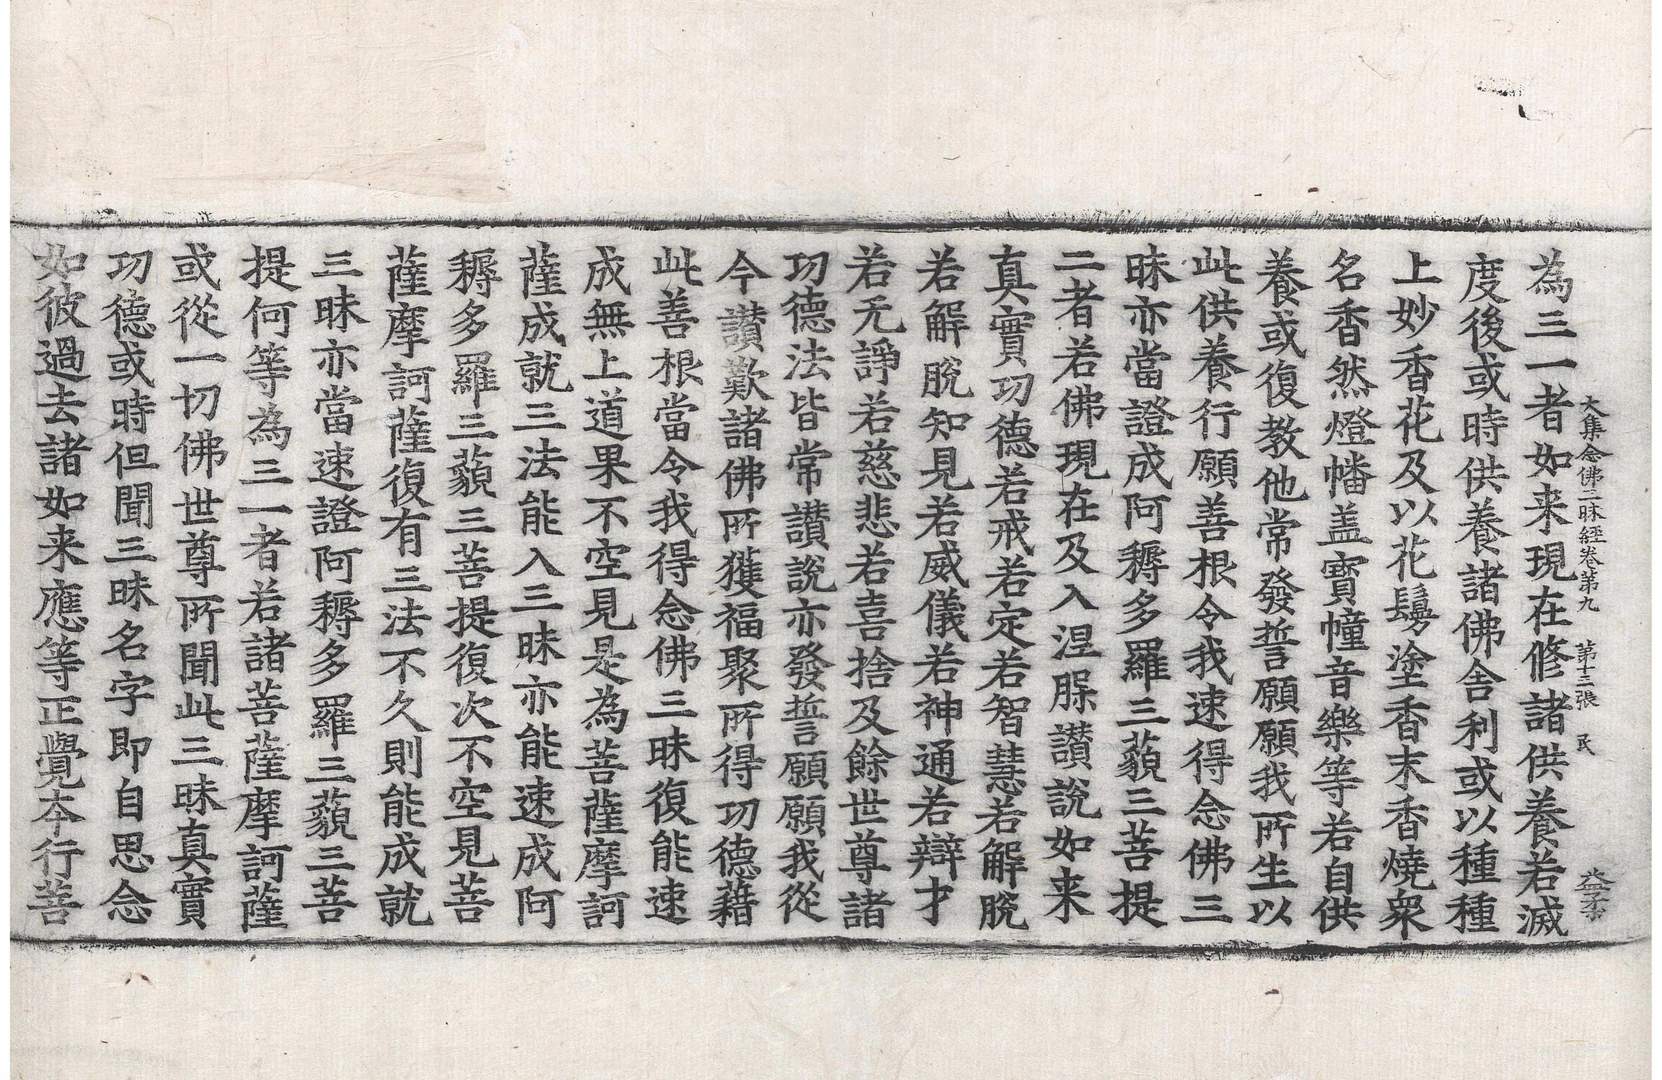 大集念佛三昧經卷第九　第十三張　民
為三一者如来現在修諸供養若滅
度後或時供養諸佛舍利或以種種
上妙香花及以花鬘塗香末香燒衆
名香然燈幡盖寳幢音樂等若自供
養或復教他常發誓願願我所生以
此供養行願善根令我速得念佛三
昧亦當證成阿耨多羅三藐三菩提
二者若佛現在及入涅槃讃説如来
真實功德若戒若定若智慧若解脫
若解脫知見若威儀若神通若辯才
若无諍若慈悲若喜捨及餘世尊諸
功德法皆常讃説亦發誓願願我從
今讃歎諸佛所獲福聚所得功德藉
此善根當令我得念佛三昧復能速
成無上道果不空見是為菩薩摩訶
薩成就三法能入三昧亦能速成阿
耨多羅三藐三菩提復次不空見菩
薩摩訶薩復有三法不久則能成就
三昧亦當速證阿耨多羅三藐三菩
提何等為三一者若諸菩薩摩訶薩
或從一切佛世尊所聞此三昧真實
功德或時但聞三昧名字即自思念
如彼過去諸如来應等正覺本行菩